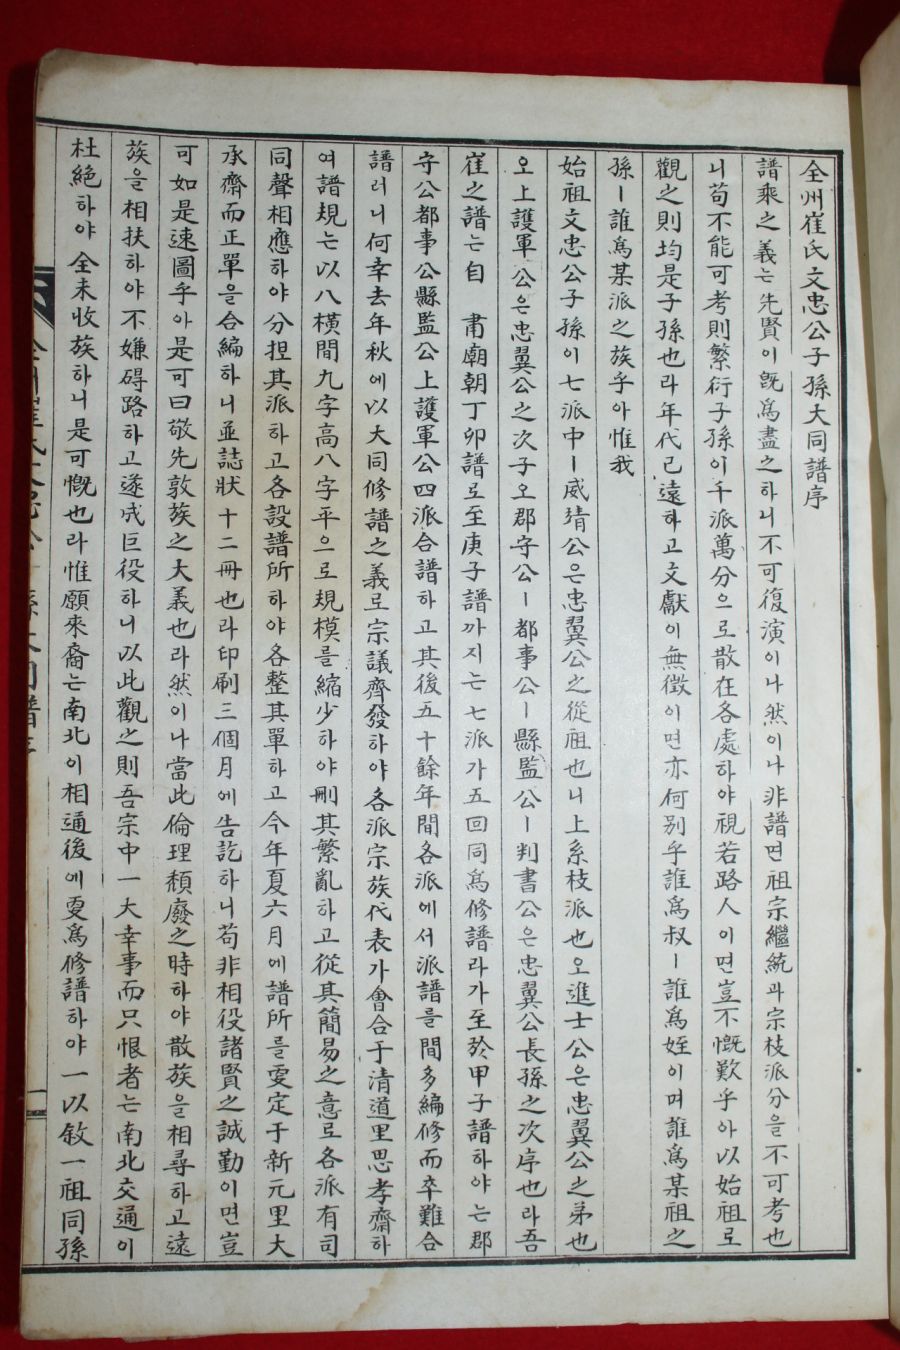 全州崔氏文忠公子孫大同譜序
譜乘之義는先賢이旣爲盡之하니不可復演이나然이나非譜면祖宗繼統과宗枝派分을不可考也
니苟不能可考則繁衍子孫이千派萬分으로散在各處하야視若路人이면豈不慨歎乎아以始祖로
觀之則均是子孫也라年代已遠하고文獻이無徵이면亦何別乎誰爲叔ㅣ誰爲姪이며誰爲某祖之
孫ㅣ誰爲某派之族乎아惟我
始祖文忠公子孫이七派中ㅣ威靖公은忠翼公之從祖也니上系枝派也오進士公은忠翼公之弟也
오上護軍公은忠翼公之次子오郡守公ㅣ都事公ㅣ縣監公ㅣ判書公은忠翼公長孫之次序也라吾
崔之譜는自 肅廟朝丁卯譜로至庚子譜까지는七派가五回同爲修譜라가至於甲子譜하야는郡
守公都事公縣監公上護軍公四派合譜하고其後五十餘年間各派에서派譜를間多編修而卒難合
譜러니何幸去年秋에以大同修譜之義로宗議齊發하야各派宗族代表가會合于淸道里思孝齋하
여譜規는以八橫間九字高八字平으로規模를縮少하야刪其繁亂하고從其簡易之意로各派有司
同聲相應하야分担其派하고各設譜所하야各整其單하고今年夏六月에譜所를更定于新元里大
承齋而正單을合編하니並誌狀十二冊也라印刷三個月에告訖하니苟非相役諸賢之誠勤이면豈
可如是速圖乎아是可曰敬先敦族之大義也라然이나當此倫理頹廢之時하야散族을相尋하고遠
族을相扶하야不嫌碍路하고遂成巨役하니以此觀之則吾宗中一大幸事而只恨者는南北交通이
杜絶하야全未收族하니是可慨也라惟願來裔는南北이相通後에更爲修譜하야一以敍一祖同孫